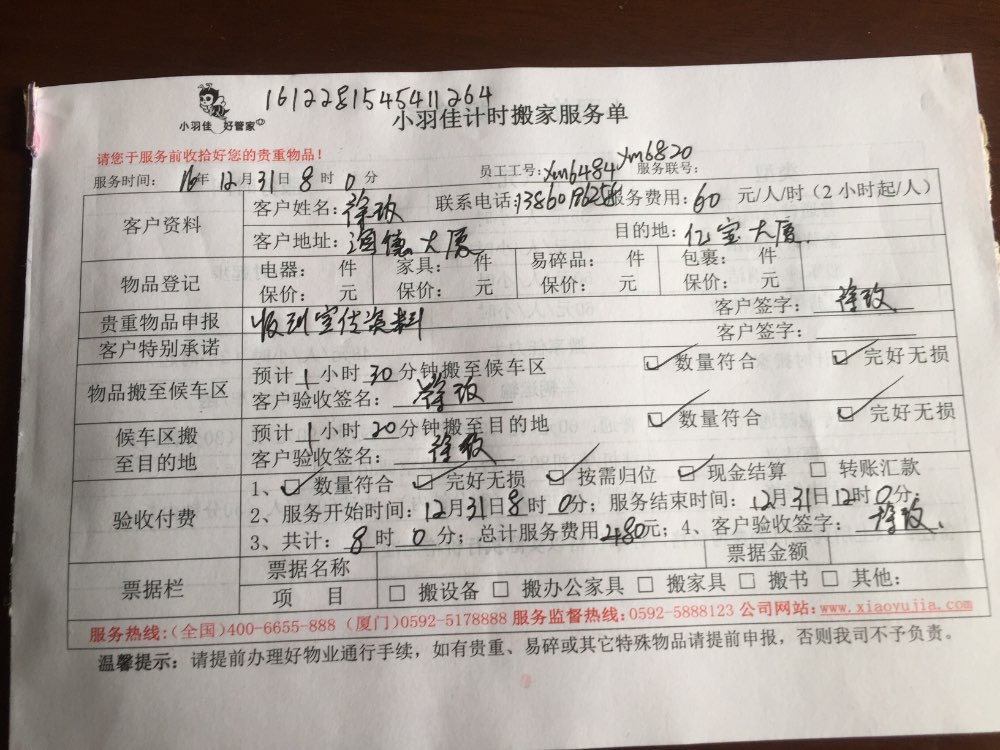 1612281545411264
小羽佳 好管家
小羽佳计时搬家服务单
请您于服务前收拾好您的贵重物品！
员工工号：xm6484 xm6820
服务时间： 16年 12月31日 8时 0分 服务联号：
客户资料 客户姓名：徐玫 联系电话： 服务费用：60 元/人/时（2 小时起/人）
客户地址： 德大厦 目的地：亿宝大厦
物品登记 电器： 件 家具： 件 易碎品： 件 包裹： 件
保价： 元 保价： 元 保价： 元 保价： 元
贵重物品申报 收到宣传资料 客户签字：徐玫
客户特别承诺 客户签字：
物品搬至候车区 预计 1 小时 30 分钟搬至候车区 ☑ 数量符合 ☑ 完好无损
客户验收签名：徐玫
候车区搬至目的地 预计 1 小时 20 分钟搬至目的地 ☑ 数量符合 ☑ 完好无损
客户验收签名：徐玫
验收付费 1、☑ 数量符合 ☑ 完好无损 ☑ 按需归位 ☑ 现金结算 □ 转账汇款
2、服务开始时间：12月31日8时 0分；服务结束时间：12月31日12时0分；
3、共计：8 时 0 分；总计服务费用480元；4、客户验收签字：徐玫.
票据栏 票据名称 票据金额
项 目 □ 搬设备 □ 搬办公家具 □ 搬家具 □ 搬书 □ 其他：
服务热线：（全国）400-6655-888 （厦门）0592-5178888 服务监督热线：0592-5888123 公司网站：www.xiaoyujia.com
温馨提示：请提前办理好物业通行手续，如有贵重、易碎或其它特殊物品请提前申报，否则我司不予负责。